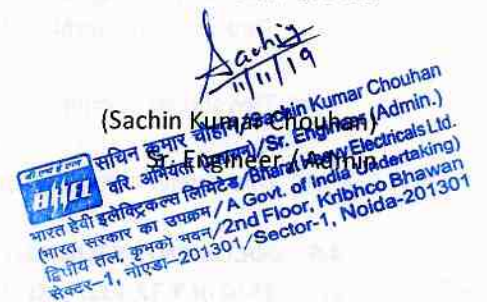 Sachin
11/11/19
(Sachin Kumar Chouhan)
Sr. Engineer (Admin
सचिन कुमार चौहान/Sachin Kumar Chouhan
वरि. अभियंता (प्रशासन)/Sr. Engineer (Admin.)
भारत हेवी इलेक्ट्रिकल्स लिमिटेड/Bharat Heavy Electricals Ltd.
(भारत सरकार का उपक्रम/A Govt. of India Undertaking)
द्वितीय तल, कृभको भवन/2nd Floor, Kribhco Bhawan
सेक्टर-1, नोएडा-201301/Sector-1, Noida-201301